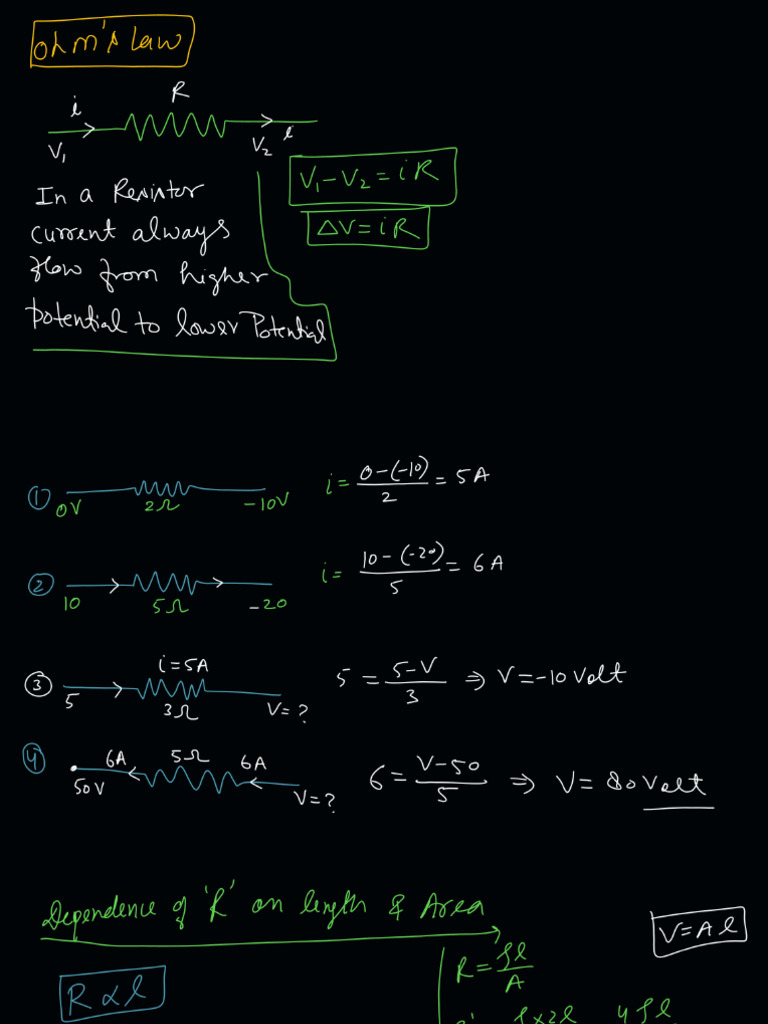 ohm's law
i R
V₁ V₂ i
V₁-V₂ = iR
ΔV = iR
In a Resistor
current always
flow from higher
potential to lower Potential
① 0V 2Ω -10V i = 0-(-10)/2 = 5A
② 10 5Ω -20 i = 10-(-20)/5 = 6A
③ 5 i=5A 3Ω V=? 5 = 5-V/3 ⇒ V=-10 Volt
④ 50V 6A 5Ω 6A V=? 6 = V-50/5 ⇒ V= 80 Volt
Dependence of 'R' on length & Area
V=Al
R ∝ l
R = ρl/A